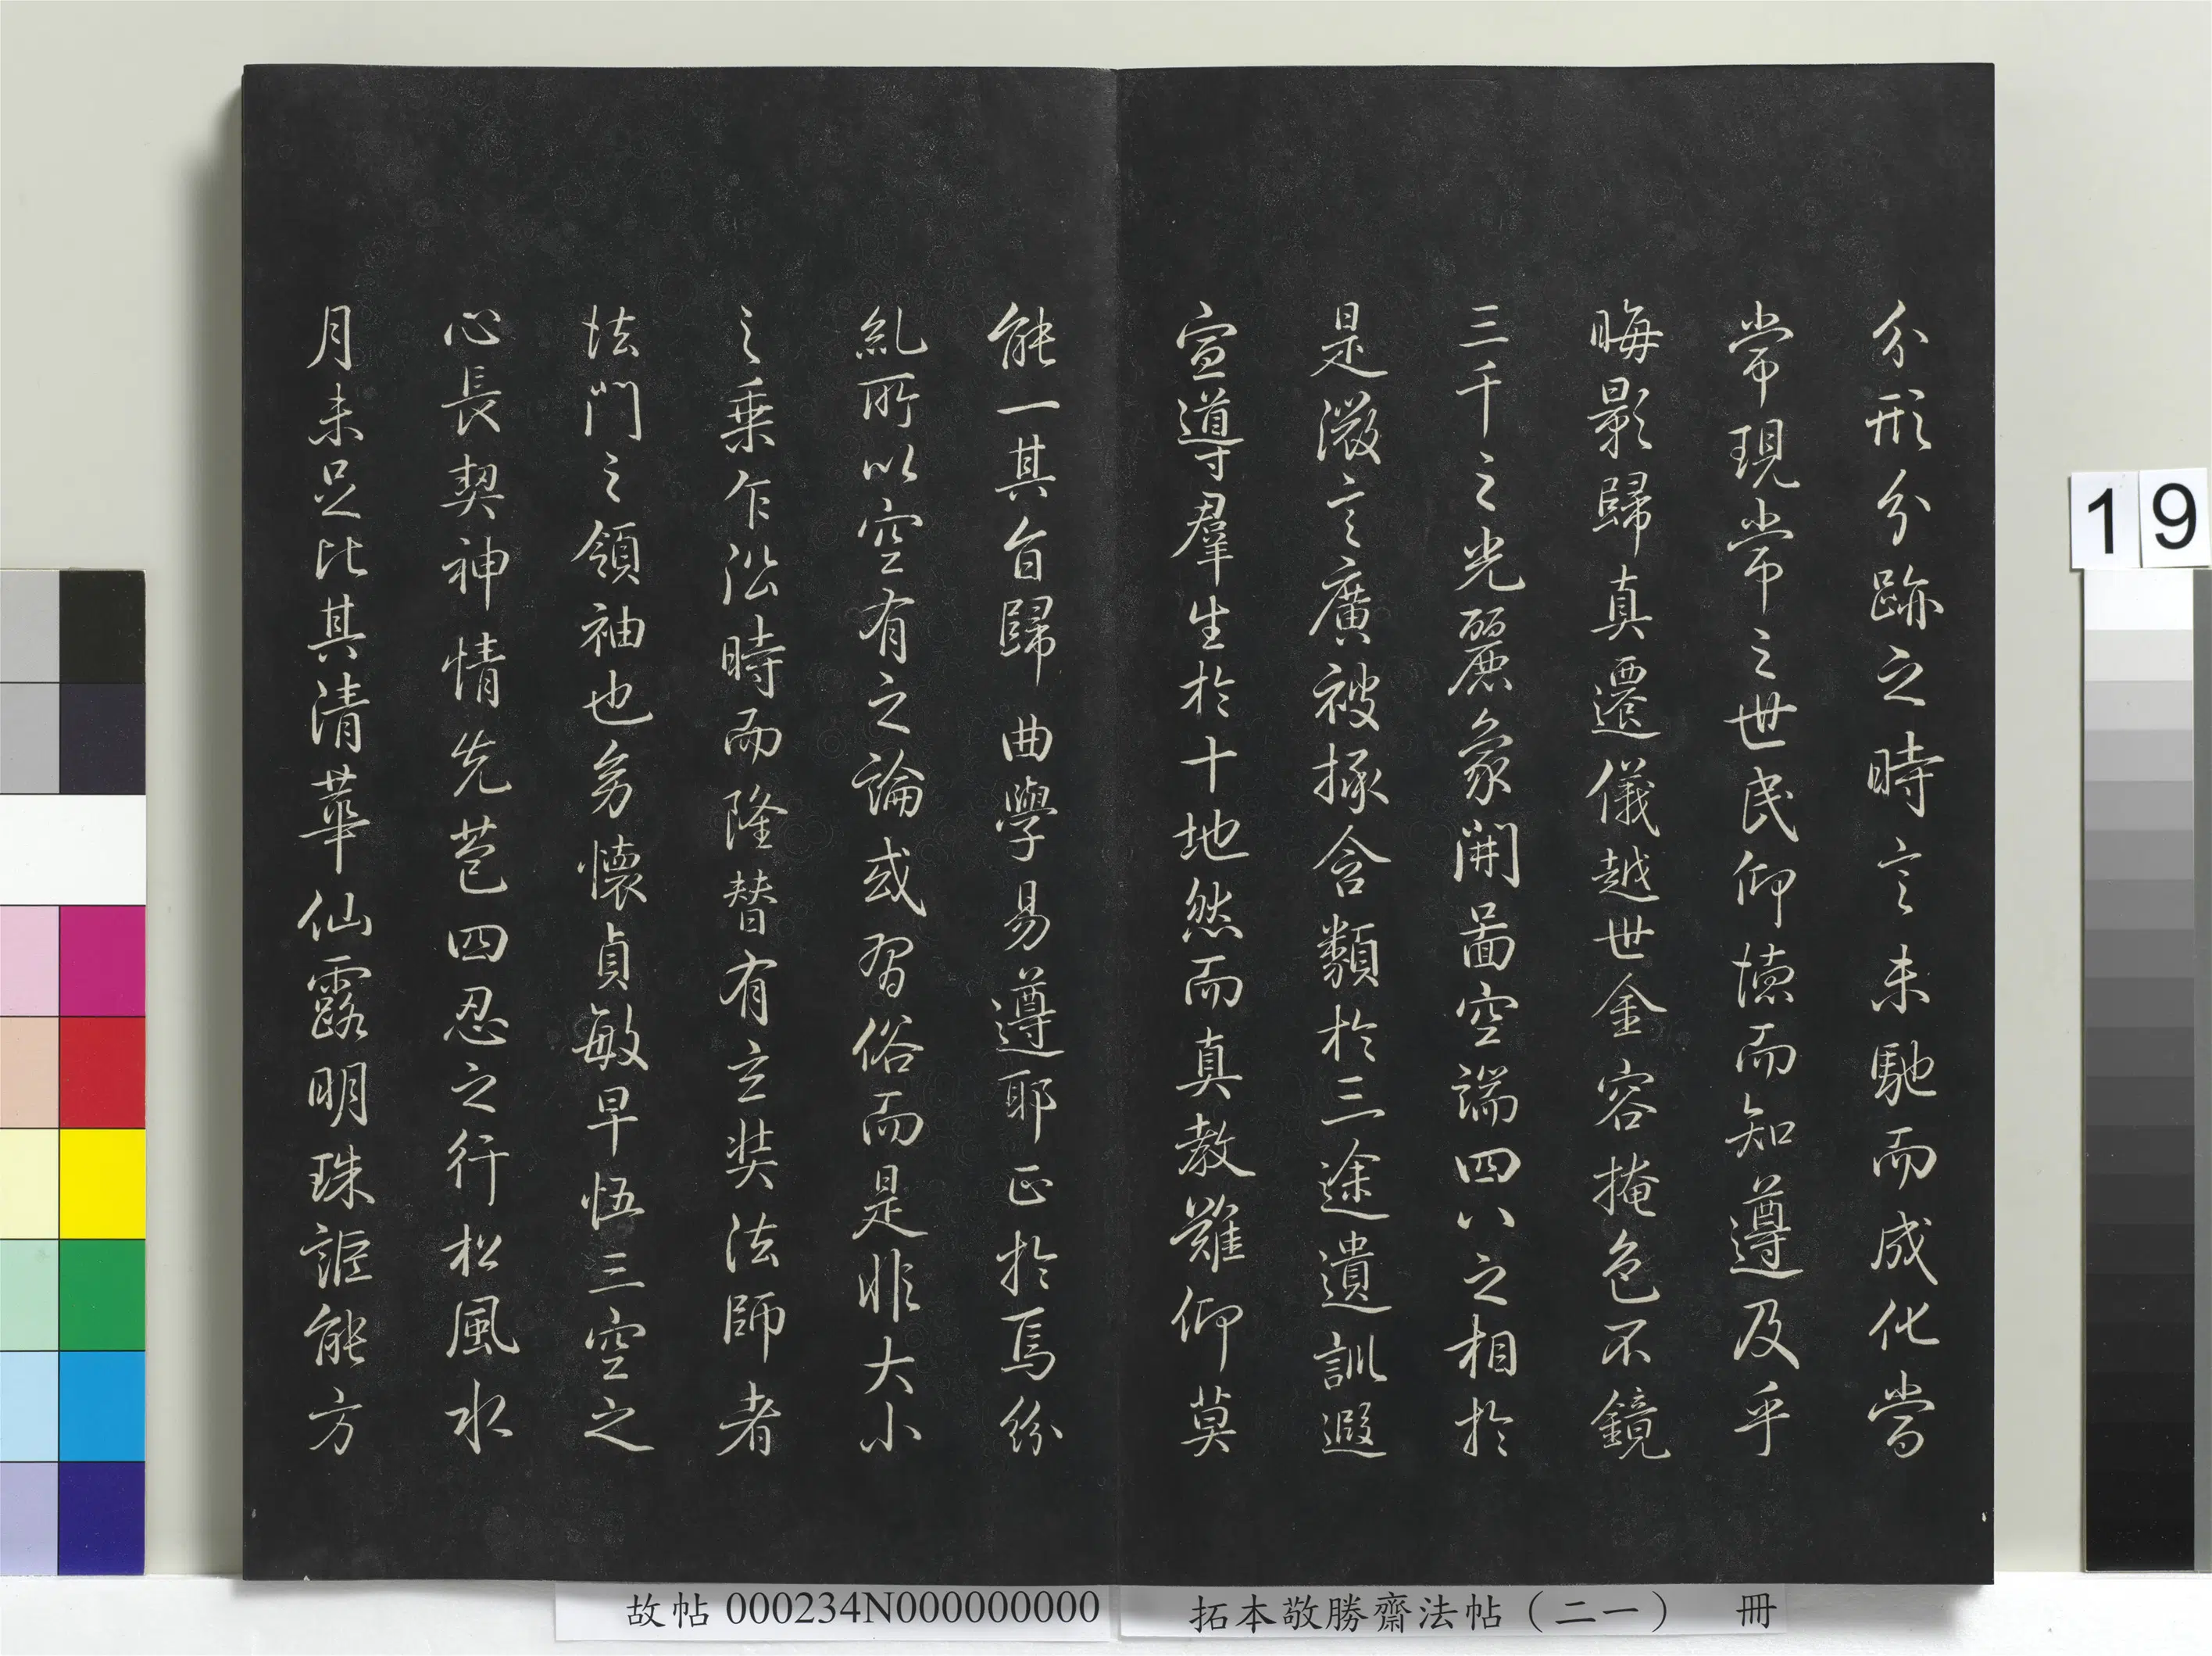 分形分跡之時言未馳而成化當
常現常之世民仰德而知遵及乎
晦影歸真遷儀越世金容掩色不鏡
三千之光麗象開圖空端四八之相於
是微言廣被拯含類於三途遺訓遐
宣導群生於十地然而真教難仰莫
能一其旨歸曲學易遵耶正於焉紛
糺所以空有之論或習俗而是非大小
之乘乍㳂時而隆替有玄奘法師者
法門之領袖也幼懷貞敏早悟三空之
心長契神情先苞四忍之行松風水
月未足比其清華仙露明珠詎能方
19
故帖 000234N000000000
拓本敬勝齋法帖（二一） 冊